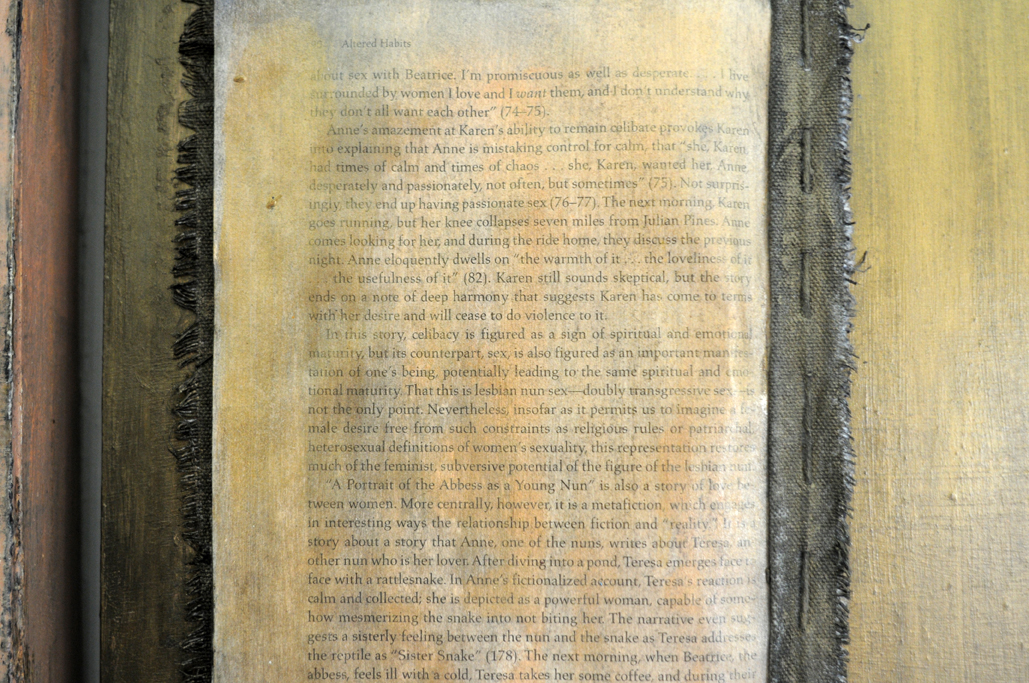 Altered Habits
about sex with Beatrice. I'm promiscuous as well as desperate. . . . I live
surrounded by women I love and I want them, and I don't understand why
they don't all want each other" (74–75).
Anne's amazement at Karen's ability to remain celibate provokes Karen
into explaining that Anne is mistaking control for calm, that "she, Karen,
had times of calm and times of chaos . . . she, Karen, wanted her, Anne,
desperately and passionately, not often, but sometimes" (75). Not surpris-
ingly, they end up having passionate sex (76–77). The next morning, Karen
goes running, but her knee collapses seven miles from Julian Pines. Anne
comes looking for her, and during the ride home, they discuss the previous
night. Anne eloquently dwells on "the warmth of it . . . the loveliness of it
. . . the usefulness of it" (82). Karen still sounds skeptical, but the story
ends on a note of deep harmony that suggests Karen has come to terms
with her desire and will cease to do violence to it.
In this story, celibacy is figured as a sign of spiritual and emotional
maturity, but its counterpart, sex, is also figured as an important manifes-
tation of one's being, potentially leading to the same spiritual and emo-
tional maturity. That this is lesbian nun sex—doubly transgressive sex—is
not the only point. Nevertheless, insofar as it permits us to imagine a fe-
male desire free from such constraints as religious rules or patriarchal
heterosexual definitions of women's sexuality, this representation restores
much of the feminist, subversive potential of the figure of the lesbian nun.
"A Portrait of the Abbess as a Young Nun" is also a story of love be-
tween women. More centrally, however, it is a metafiction, which engages
in interesting ways the relationship between fiction and "reality." It is a
story about a story that Anne, one of the nuns, writes about Teresa, an-
other nun who is her lover. After diving into a pond, Teresa emerges face to
face with a rattlesnake. In Anne's fictionalized account, Teresa's reaction is
calm and collected; she is depicted as a powerful woman, capable of some-
how mesmerizing the snake into not biting her. The narrative even sug-
gests a sisterly feeling between the nun and the snake as Teresa addresses
the reptile as "Sister Snake" (178). The next morning, when Beatrice, the
abbess, feels ill with a cold, Teresa takes her some coffee, and during their